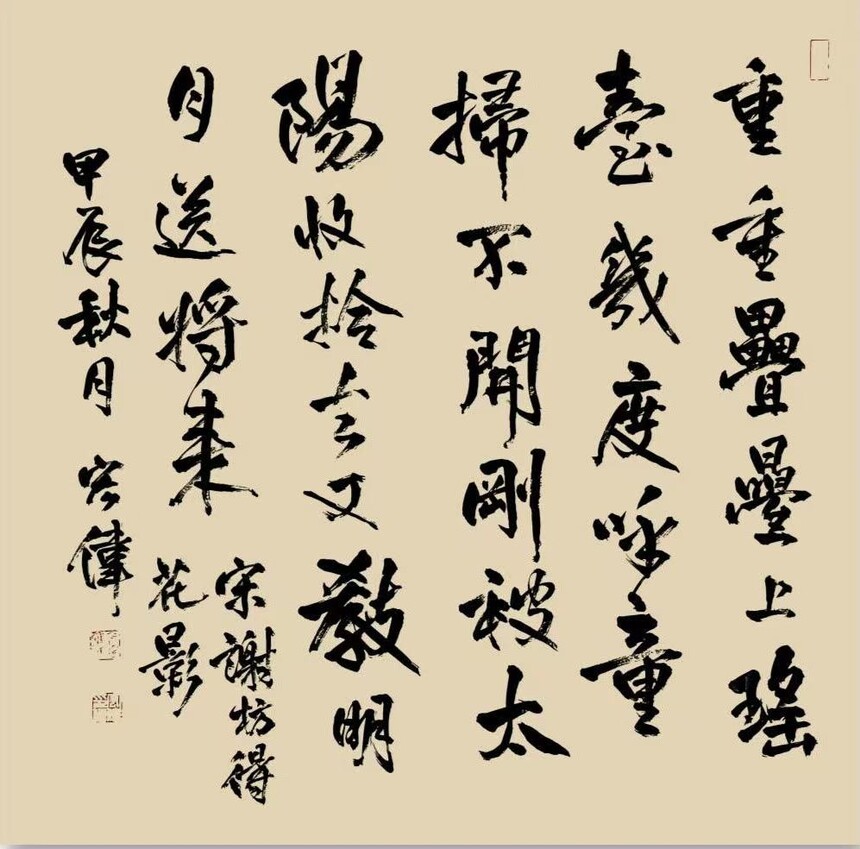 重重疊疊上瑤
臺幾度呼童
掃不開剛被太
陽收拾去又教明
月送將来
宋謝枋得
花影
甲辰秋月 宏偉